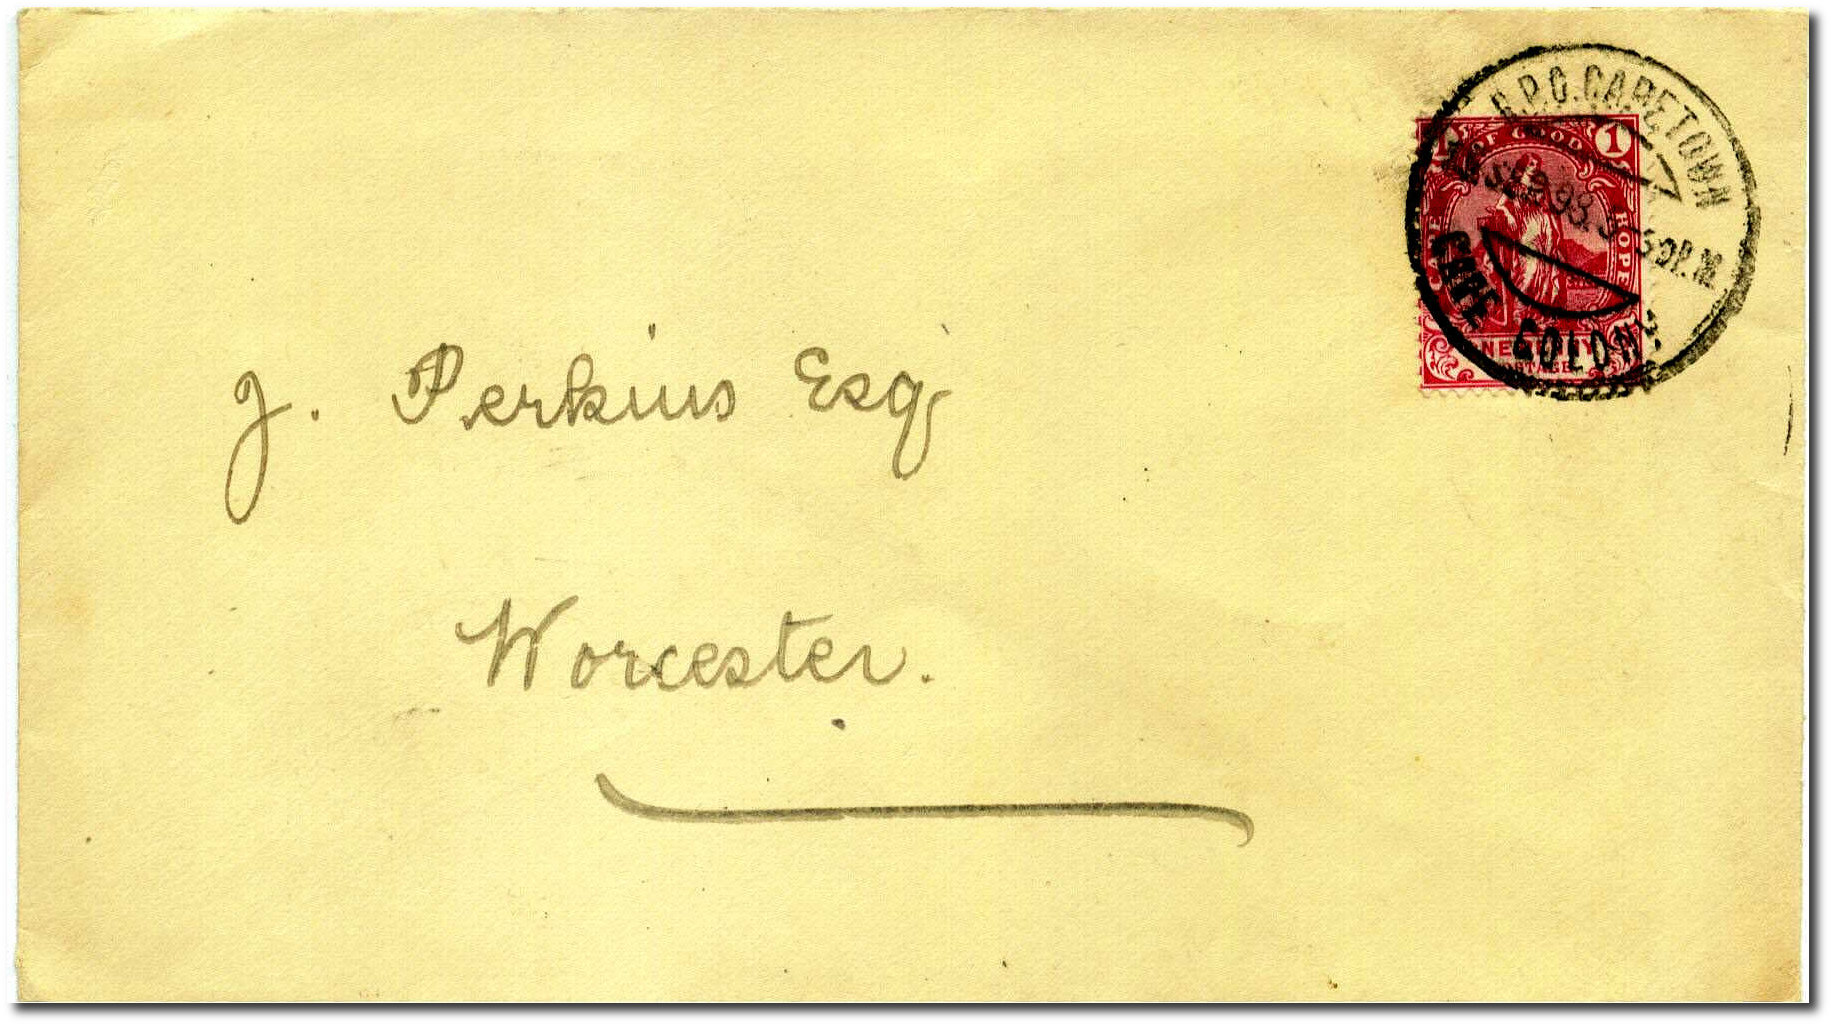 G.P.O. CAPETOWN
SEP 98
P.M
CAPE COLONY
OF GOOD HOPE
1
POSTAGE
J. Perkins Esq
Worcester.